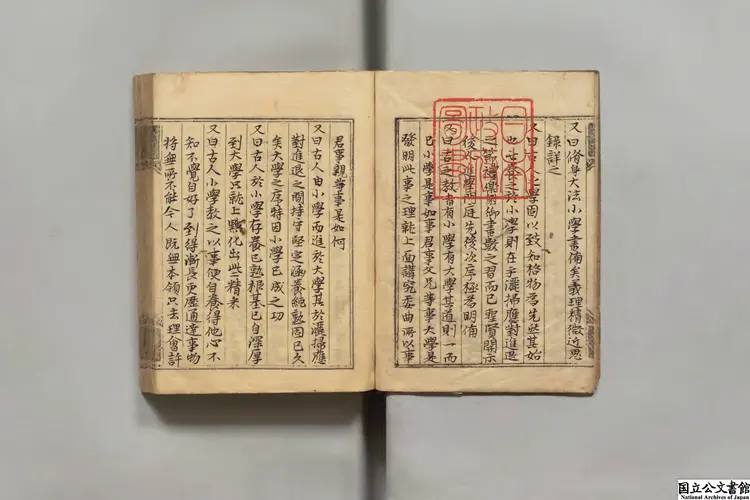 又曰脩身大法小學書備矣義理精微近思
錄詳之
又曰古人之學固以致知格物爲先然其始
也必養之於小學則在乎灑掃應對進退
之節禮樂射御書數之習而已聖賢開示
後人進學門庭先後次序極爲明備
又曰古之教者有小學有大學其道則一而
已小學是事如事君事父兄等事大學是
發明此事之理就上面講究委曲所以事
君事親等事是如何
又曰古人由小學而進於大學其於灑掃應
對進退之間持守堅定涵養純熟固已久
矣大學之序特因小學已成之功
又曰古人於小學存養已熟根基已自深厚
到大學只就上點化出些精采
又曰古人小學教之以事便自養得他心不
知不覺自好了到得漸長更歷通達事物
將無所不能今人既無本領只去理會許
日本
政府
圖書
国立公文書館
National Archives of Japan